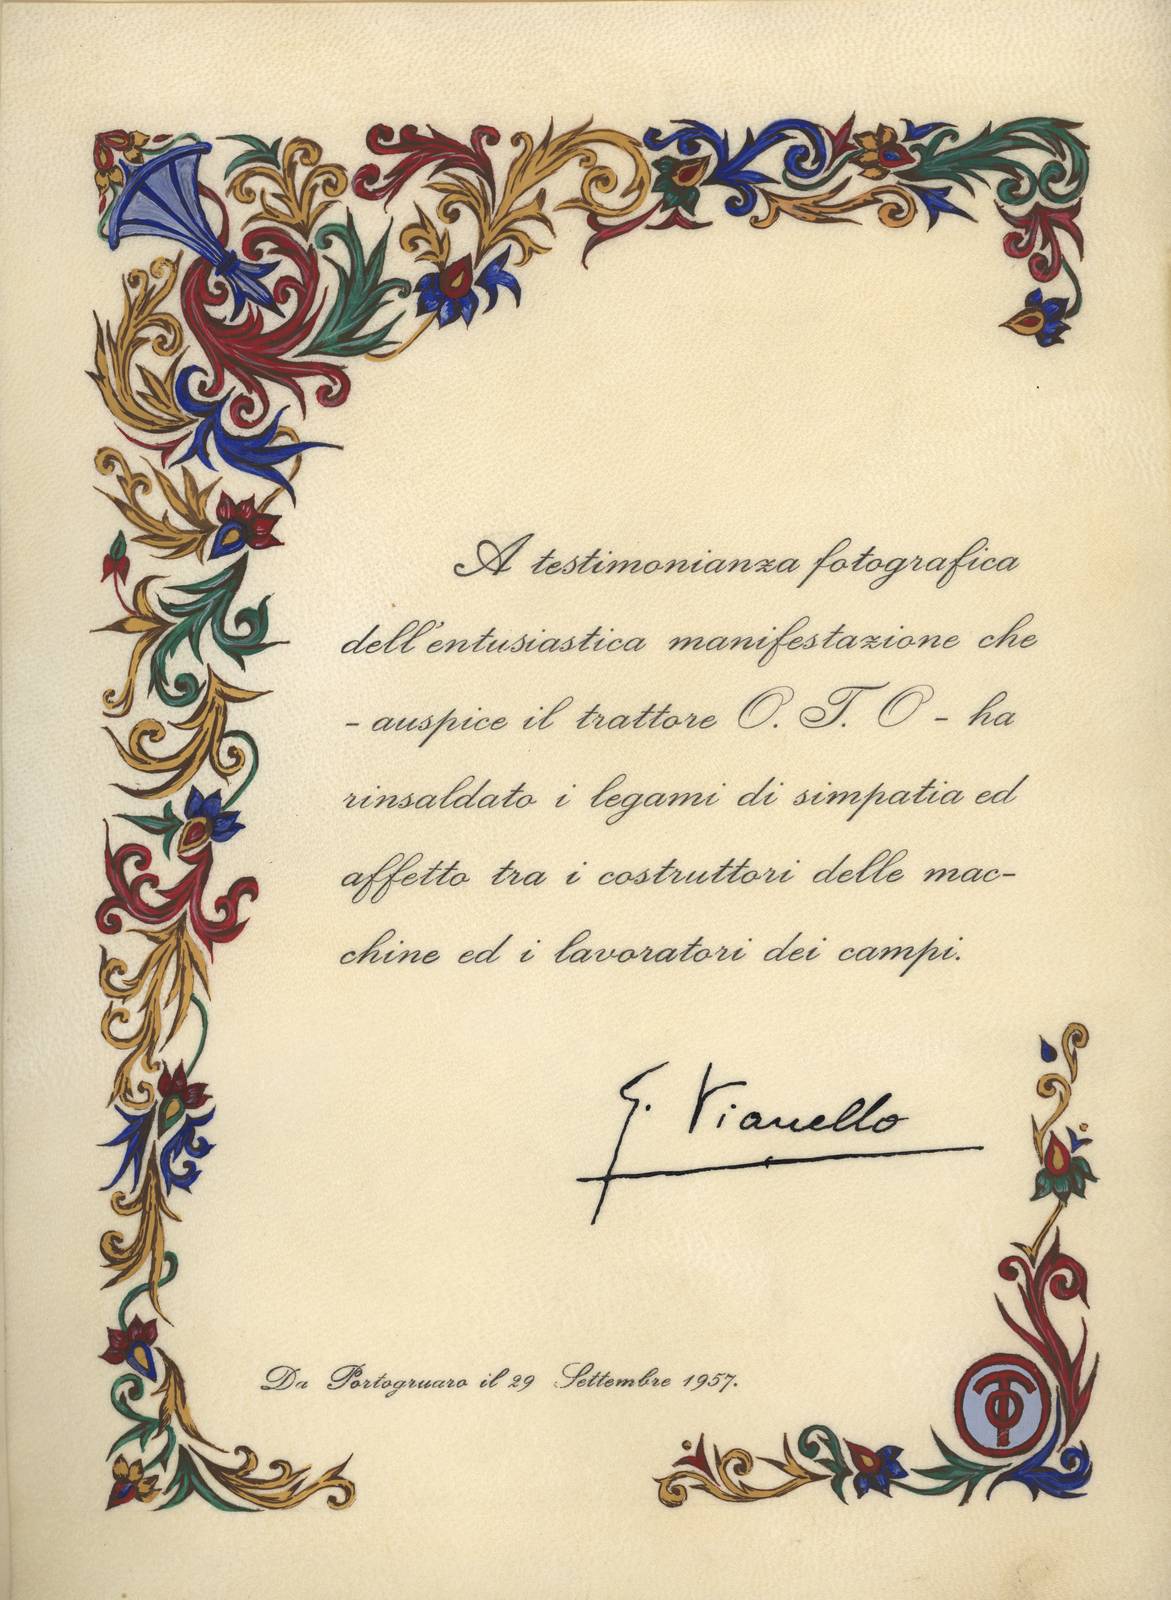 A testimonianza fotografica
dell'entusiastica manifestazione che
- auspice il trattore O. T. O - ha
rinsaldato i legami di simpatia ed
affetto tra i costruttori delle mac-
chine ed i lavoratori dei campi.
G. Vianello
Da Portogruaro il 29 Settembre 1957.